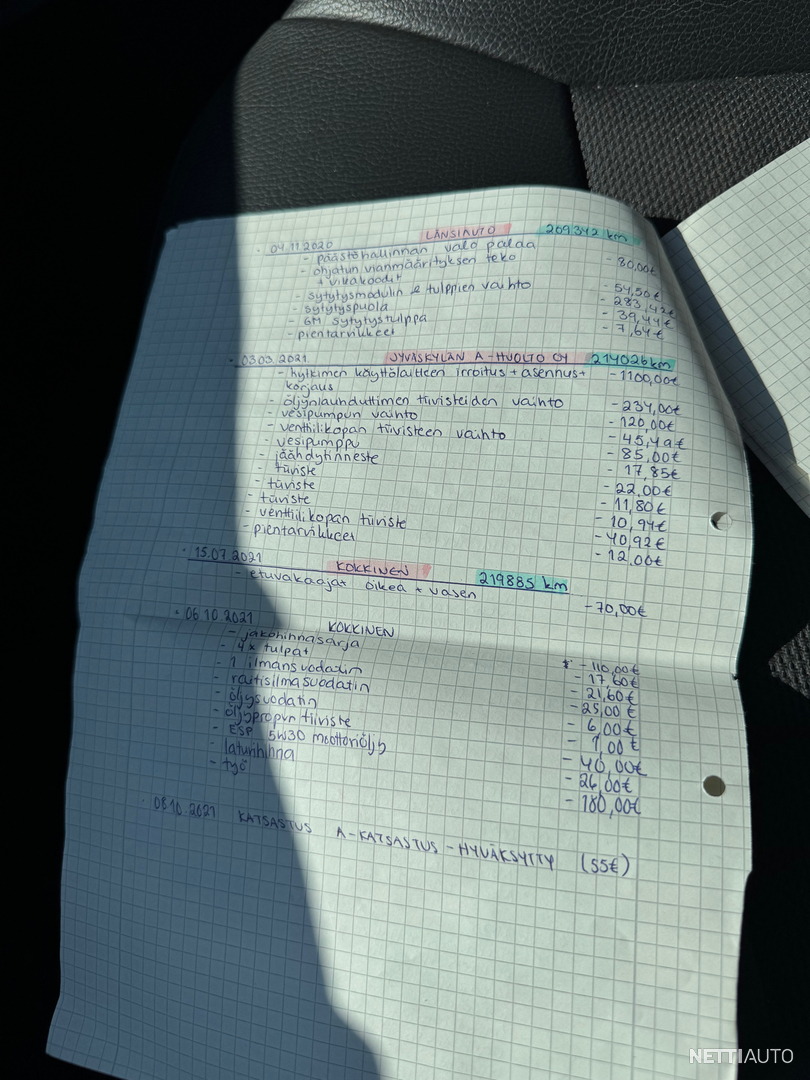 · 04.11.2020 LÄNSIAUTO 209342 km
- päästöhallinnan valo palaa
- ohjatun vianmäärityksen teko - 80,00€
+ vikakoodit
- sytytysmodulin & tulppien vaihto - 54,50€
- sytytyspuola - 283,42€
- GM sytytystulppa - 39,44€
- pientarvikkeet - 7,64€
· 03.03.2021 JYVÄSKYLÄN A-HUOLTO OY 214026km
- hylkimen käyttölaitteen irroitus + asennus + - 1100,00€
korjaus
- öljynlauhduttimen tiivisteiden vaihto - 234,00€
- vesipumpun vaihto - 120,00€
- venttiilikopan tiivisteen vaihto - 45,49€
- vesipumppu - 85,00€
- jäähdytinneste - 17,85€
- tiiviste - 22,00€
- tiiviste - 11,80€
- tiiviste - 10,94€
- venttiilikopan tiiviste - 40,92€
- pientarvikkeet - 12,00€
· 15.07.2021 KOKKINEN 219885 km
- etuvakaajat oikea + vasen - 70,00€
· 06.10.2021 KOKKINEN
- jakohihnasarja - 110,00€
- 4x tulpat - 17,60€
- 1 ilmansuodatin - 21,60€
- raitisilmasuodatin - 25,00€
- öljysuodatin - 6,00€
- öljypropun tiiviste - 1,00€
- ESP 5W30 moottoriöljy - 40,00€
- laturihihna - 26,00€
- työ - 180,00€
· 08.10.2021 KATSASTUS A-KATSASTUS - HYVÄKSYTTY (55€)
NETTIAUTO